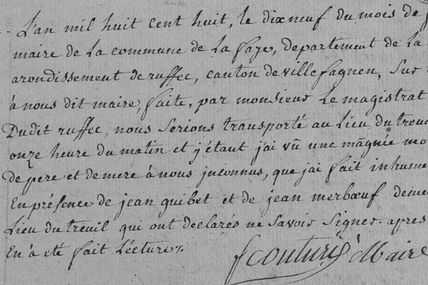 L'an mil huit cent huit, le dixneuf du mois de
maire de la commune de la faye, département de la
arondissement de ruffec, canton de villefagnen, Sur
à nous dit maire, faite, par monsieur Le magistrat
Dudit ruffec, nous Serions transporté au Lieu du treuil
onze heure du matin et j étant jai vü une
de pere et de mere à nous inconnus, que jai fait inhumer
En présence de jean quibet et de jean merbœuf
Lieu du treuil qui ont declarés ne Savoir Signer apres
En à eté fait Lécture
fcouturié Maire